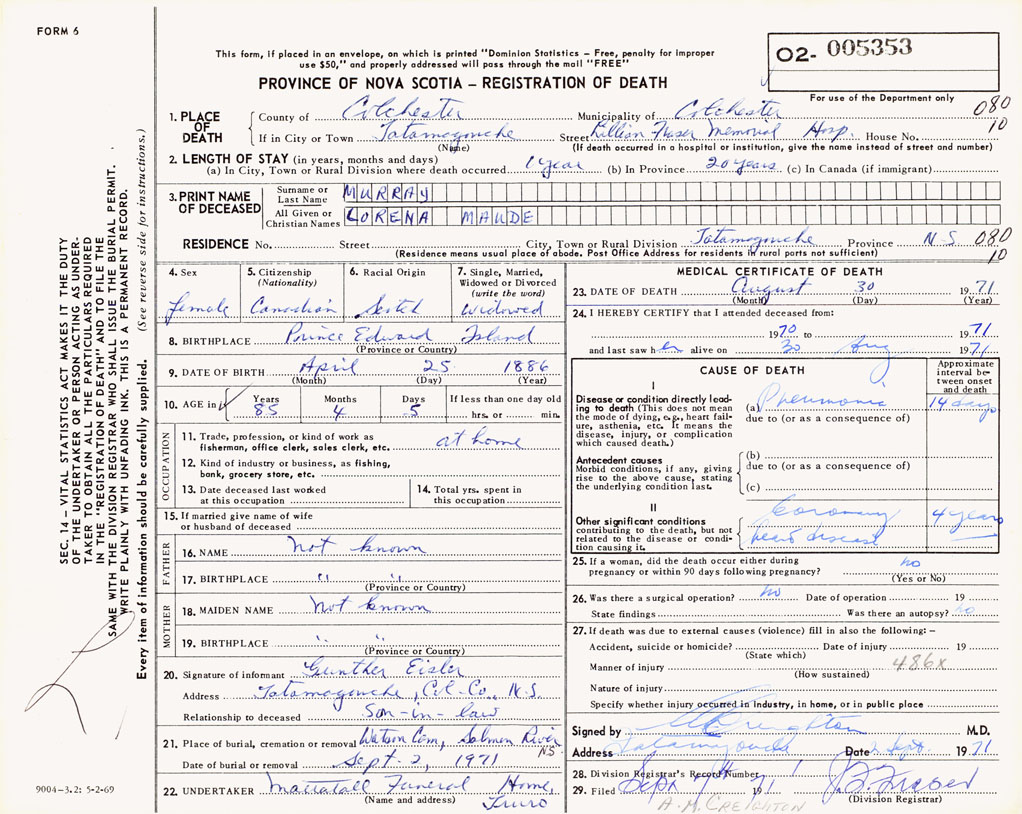 FORM 6
02- 005353
This form, if placed in an envelope, on which is printed "Dominion Statistics – Free, penalty for improper
use $50," and properly addressed will pass through the mail "FREE"
PROVINCE OF NOVA SCOTIA – REGISTRATION OF DEATH
For use of the Department only
1. PLACE OF DEATH
County of Colchester Municipality of Colchester 080
If in City or Town Tatamagouche Street Lillian Fraser Memorial Hosp. House No. 10
(Name) (If death occurred in a hospital or institution, give the name instead of street and number)
2. LENGTH OF STAY (in years, months and days)
(a) In City, Town or Rural Division where death occurred 1 year (b) In Province 20 years (c) In Canada (if immigrant)
3. PRINT NAME OF DECEASED
Surname or Last Name MURRAY
All Given or Christian Names LORENA MAUDE
RESIDENCE No. Street City, Town or Rural Division Tatamagouche Province N.S. 080
(Residence means usual place of abode. Post Office Address for residents in rural ports not sufficient) 10
4. Sex
female
5. Citizenship
(Nationality)
Canadian
6. Racial Origin
Scotch
7. Single, Married,
Widowed or Divorced
(write the word)
Widowed
8. BIRTHPLACE Prince Edward Island
(Province or Country)
9. DATE OF BIRTH April 25 1886
(Month) (Day) (Year)
10. AGE in Years Months Days If less than one day old
85 4 5 hrs. or min.
OCCUPATION
11. Trade, profession, or kind of work as
fisherman, office clerk, sales clerk, etc. at home
12. Kind of industry or business, as fishing,
bank, grocery store, etc.
13. Date deceased last worked
at this occupation
14. Total yrs. spent in
this occupation
15. If married give name of wife
or husband of deceased
FATHER
16. NAME Not known
17. BIRTHPLACE " "
(Province or Country)
MOTHER
18. MAIDEN NAME Not known
19. BIRTHPLACE " "
(Province or Country)
20. Signature of informant Gunther Eisler
Address Tatamagouche, Col. Co., N.S.
Relationship to deceased Son-in-law
21. Place of burial, cremation or removal Watson Cem, Salmon River NS
Date of burial or removal Sept. 2, 1971
22. UNDERTAKER Mattatall Funeral Home,
(Name and address) Truro
MEDICAL CERTIFICATE OF DEATH
23. DATE OF DEATH August 30 1971
(Month) (Day) (Year)
24. I HEREBY CERTIFY that I attended deceased from:
1970 to 1971
and last saw her alive on 30 Aug 1971
CAUSE OF DEATH
Approximate
interval be-
tween onset
and death
I
Disease or condition directly lead-
ing to death (This does not mean
the mode of dying, e.g., heart fail-
ure, asthenia, etc. It means the
disease, injury, or complication
which caused death.)
(a) Pneumonia 14 days
due to (or as a consequence of)
Antecedent causes
Morbid conditions, if any, giving
rise to the above cause, stating
the underlying condition last.
(b)
due to (or as a consequence of)
(c)
II
Other significant conditions
contributing to the death, but not
related to the disease or condi-
tion causing it.
Coronary 4 years
heart disease
25. If a woman, did the death occur either during
pregnancy or within 90 days following pregnancy? no
(Yes or No)
26. Was there a surgical operation? no Date of operation 19
State findings Was there an autopsy? no
27. If death was due to external causes (violence) fill in also the following: –
Accident, suicide or homicide? Date of injury 19
(State which) 486x
Manner of injury
(How sustained)
Nature of injury
Specify whether injury occurred in industry, in home, or in public place
Signed by A Creighton M.D.
Address Tatamagouche Date 2 Sept. 1971
28. Division Registrar's Record Number
29. Filed Sept 1971
(Division Registrar)
A.M. CREIGHTON
SEC. 14 – VITAL STATISTICS ACT MAKES IT THE DUTY
OF THE UNDERTAKER OR PERSON ACTING AS UNDER-
TAKER TO OBTAIN ALL THE PARTICULARS REQUIRED
IN THE "REGISTRATION OF DEATH" AND TO FILE THE
SAME WITH THE DIVISION REGISTRAR WHO SHALL ISSUE THE BURIAL PERMIT.
WRITE PLAINLY WITH UNFADING INK. THIS IS A PERMANENT RECORD.
Every item of information should be carefully supplied. (See reverse side for instructions.)
9004-3.2: 5-2-69